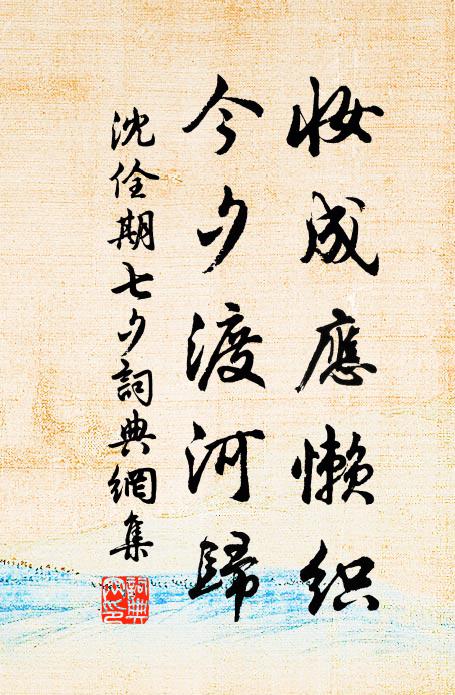 妆成應懒织
今夕渡河歸
沈佺期七夕詞典網集